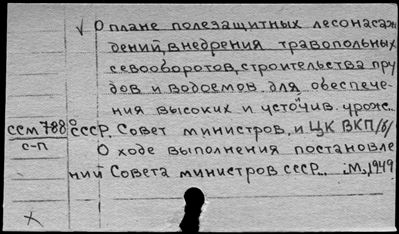 √ О плане полезащитных лесонасаж
дений, внедрения травопольных
севооборотов, строительства пру
дов и водоемов для обеспече-
ния высоких и устойчив. урож...
ССМ 788 СССР. Совет министров, и ЦК ВКП/б/
С-П О ходе выполнения постановле
ний Совета министров СССР... М., 1949
X